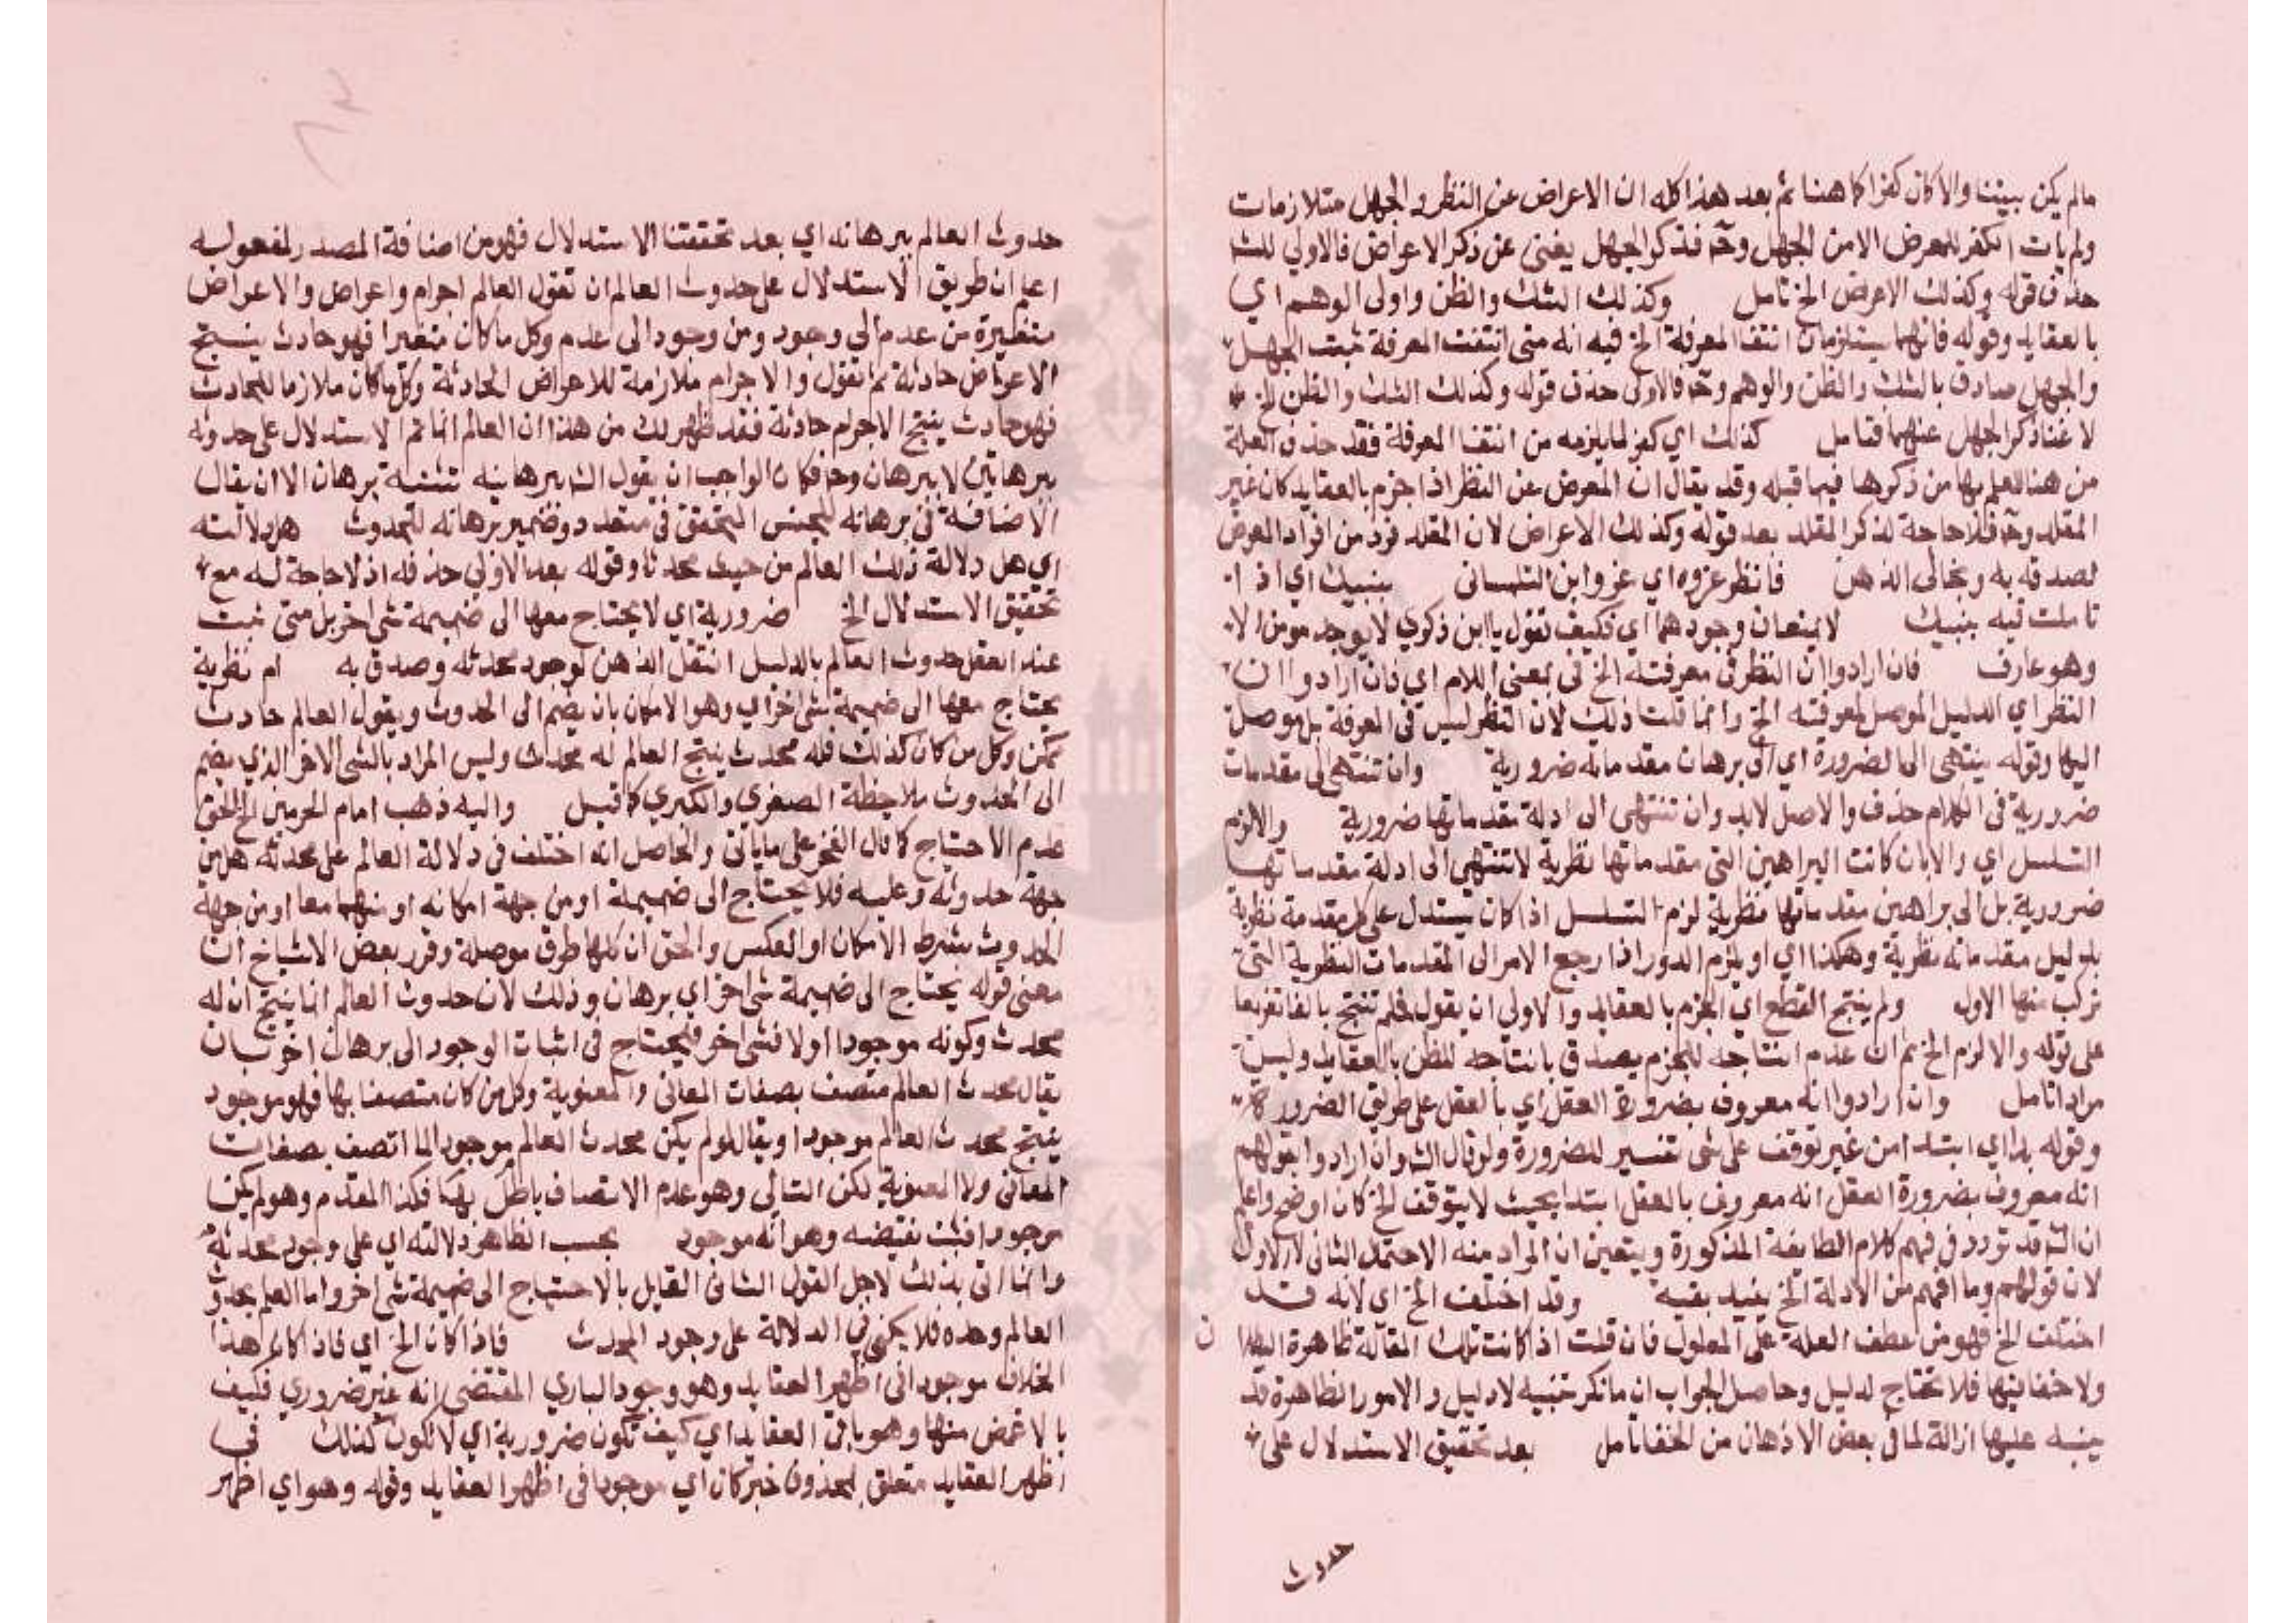 مالم يكن بيننا والا كان كفرا كما هنا ثم بعد هذا كله ان الاعراض عن النظر والجهل متلازمان
ولم يات الكفر للمعرض الا من الجهل وحـ فذكر الجهل يغنى عن ذكر الاعراض فالاولي للشـ
حذف قوله وكذلك الاعراض الخ تامل وكذلك الشك والظن واولى الوهم اي
بالعقايد وقوله فانهما يستلزمان انتفا المعرفة الخ فيه انه متى انتفت المعرفة ثبت الجهل
والجهل صادق بالشك والظن والوهم وحـ فالاولى حذف قوله وكذلك الشك والظن الخ
لاغنا ذكر الجهل عنهما فتامل كذلك اي كفر لما يلزمه من انتفا المعرفة فقد حذف العلة
من هنا للعلم بها من ذكرها فيما قبله وقد يقال ان المعرض عن النظر اذا جزم بالعقايد كان غير
المقلد وحـ فلا حاجة لذكر المقلد بعد قوله وكذلك الاعراض لان المقلد فرد من افراد المعرض
لصدقه به وبخالى الذهن فانظر عزوه اي عزو ابن التلمسانى ينبيك اي اذا
تاملت فيه ينبيك لا يمنعان وجودهما اي فكيف تقول يا ابن ذكري لا يوجد مومن الا
وهو عارف فان ارادوا ان النظر فى معرفته الخ فى بمعنى اللام اي فان ارادوا ان
النظر اي الدليل الموصل لمعرفته الخ وانما قلت ذلك لان النظر ليس فى المعرفة بل موصل
اليها وقوله ينتهى الى الضرورة اي الى برهان مقدماته ضرورية وان تنتهى الى مقدمات
ضرورية فى الكلام حذف والاصل لابد وان تنتهى الى ادلة مقدماتها ضرورية والا لزم
التسلسل اي والا بان كانت البراهين التى مقدماتها نظرية لا تنتهى الى ادلة مقدماتها
ضرورية بل الى براهين مقدماتها نظرية لزم التسلسل اذا كان يستدل على كل مقدمة نظرية
بدليل مقدماته نظرية وهكذا اي او يلزم الدور اذا رجع الامر الى المقدمات النظرية التى
تركب منها الاول ولم ينتج القطع اي الجزم بالعقايد والاولي ان يقول فلم تنتج بالفا تفريعا
على قوله والا لزم الخ ثم ان عدم انتاجه للجزم يصدق بانتاجه للظن بالعقايد وليس
مرادا تامل وان ارادوا انه معروف بضرورة العقل اي بالعقل على طريق الضرورة
وقوله بدا اي ابتدا من غير توقف على شى تفسير للضرورة ولو قال الشـ وان ارادوا بقولهم
انه معروف بضرورة العقل انه معروف بالعقل ابتدا بحيث لا يتوقف الخ كان اوضح واعلم
ان الشـ قد تردد فى فهم كلام الطايفة المذكورة ويتعين ان المراد منه الاحتمال الثانى لا الاول
لان قولهم وما افهم من الادلة الخ يفيد بقية وقد اختلف الخ اي لانه قد
اختلف الخ فهو من عطف العلة على المعلول فان قلت اذا كانت تلك المقالة ظاهرة البطلان
ولا خفا فيها فلا تحتاج لدليل وحاصل الجواب ان ما ذكر تنبيه لا دليل والامور الظاهرة قد
ينبه عليها ازالة لما فى بعض الاذهان من الخفا تامل بعد تحقيق الاستدلال على
حدوث
حدوث العالم ببرهانه اي بعد تحققنا الاستدلال فهو من اضافة المصدر لمفعوله
اعلم ان طريق الاستدلال على حدوث العالم ان تقول العالم اجرام واعراض والاعراض
متغيرة من عدم الى وجود ومن وجود الى عدم وكل ما كان متغيرا فهو حادث ينتج
الاعراض حادثة ثم تقول والاجرام ملازمة للاعراض الحادثة وكل ما كان ملازما للحادث
فهو حادث ينتج الاجرام حادثة فقد ظهر لك من هذا ان العالم انما تم الاستدلال على حدوثه
ببرهانين لا ببرهان وحـ فكان الواجب ان يقول الشـ ببرهانيه تثنية برهان الا ان يقال
الاضافة فى برهانه للجنس المتحقق فى متعدد وضمير برهانه للحدوث هل دلالته
اي هل دلالة ذلك العالم من حيث محدثا وقوله بعد الاولي حذفه اذ لا حاجة له مع
تحقيق الاستدلال الخ ضرورية اي لا يحتاج معها الى ضميمة شى اخر بل متى ثبت
عند العقل حدوث العالم بالدليل انتقل الذهن لوجود محدثه وصدق به ام نظرية
يحتاج معها الى ضميمة شى اخر اي وهو الامكان بان يضم الى الحدوث ويقول العالم حادث
ممكن وكل من كان كذلك فله محدث ينتج العالم له محدث وليس المراد بالشى الاخر الذي يضم
الى الحدوث ملاحظة الصغري والكبري كما قيل واليه ذهب امام الحرمين الخ الحق
عدم الاحتياج كما قال الفخر على ما ياتى والحاصل انه اختلف فى دلالة العالم على محدثه هل من
جهة حدوثه وعليه فلا يحتاج الى ضميمة او من جهة امكانه او منهما معا او من جهة
الحدوث بشرط الامكان او العكس والحق ان كلها طرق موصلة وقرر بعض الاشياخ ان
معنى قوله يحتاج الى ضميمة شى اخر اي برهان وذلك لان حدوث العالم انما ينتج ان له
محدث وكونه موجودا اولا فشى اخر فيحتاج فى اثبات الوجود الى برهان اخر بان
يقال محدث العالم متصف بصفات المعانى والمعنوية وكل من كان متصفا بها فهو موجود
ينتج محدث العالم موجودا او يقال لو لم يكن محدث العالم موجودا لما اتصف بصفات
المعانى ولا المعنوية لكن التالى وهو عدم الاتصاف باطل بها فكذا المقدم وهو لم يكن
موجودا فثبت نقيضه وهو انه موجود بحسب الظاهر دلالته اي على وجود محدثه
وانما اتى بذلك لاجل القول الثانى القايل بالاحتياج الى ضميمة شى اخر واما العلم بحدوث
العالم وحده فلا يكفى فى الدلالة على وجود المحدث فاذا كان الخ اي فاذا كان هذا
الخلاف موجودا فى اظهر العقايد وهو وجود الباري المقتضى انه غير ضروري فكيف
بالاغمض منها وهو باقى العقايد اي كيف تكون ضرورية اي لا تكون كذلك فى
اظهر العقايد متعلق بمحذوف خبر كان اي موجودا فى اظهر العقايد وقوله وهو اي اظهر